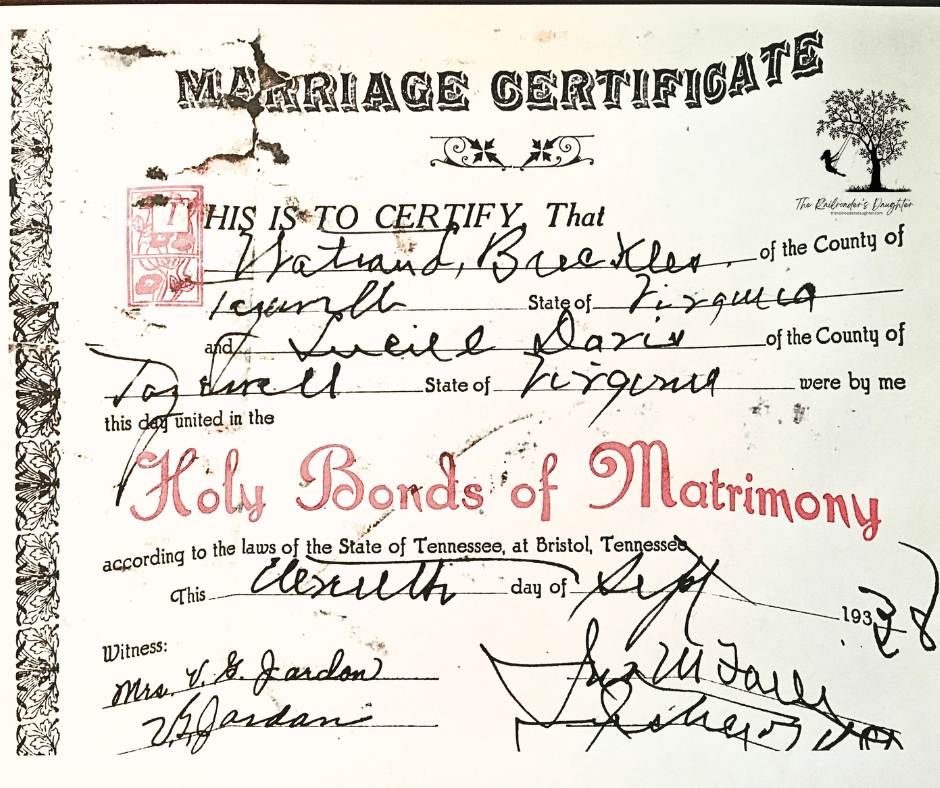 MARRIAGE CERTIFICATE
The Railroader's Daughter
therailroadersdaughter.com
THIS IS TO CERTIFY That
of the County of
State of Virginia
and Lucille Davis of the County of
Tazewell State of Virginia were by me
this day united in the
Holy Bonds of Matrimony
according to the laws of the State of Tennessee, at Bristol, Tennessee
This day of Sept 1938
Witness:
Mrs. V. G. Jardon
V. G. Jardan